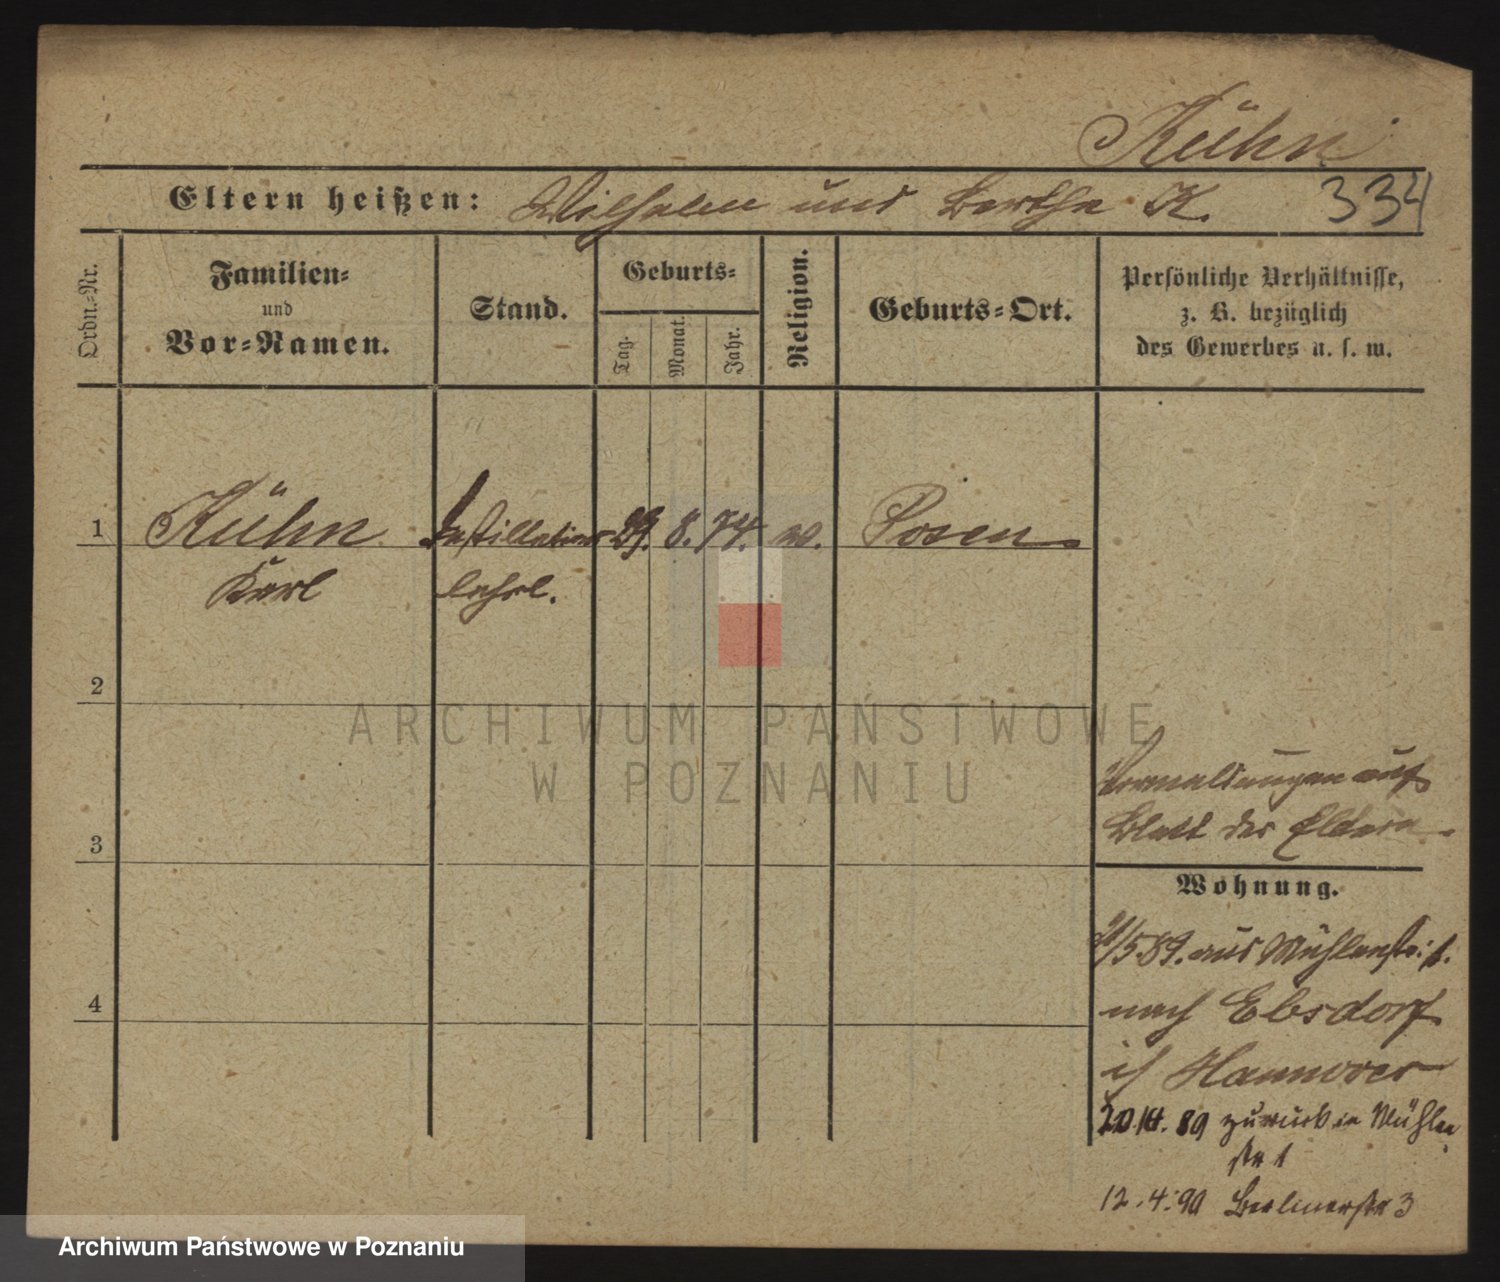 Kühn
Eltern heißen: Wilhelm und Bertha K. 334
Ordn.-Nr.
Familien-
und
Vor-Namen.
Stand.
Geburts-
Tag.
Monat.
Jahr.
Religion.
Geburts-Ort.
Persönliche Verhältnisse,
z. B. bezüglich
des Gewerbes u. s. w.
1 Kühn Destillations 29. 8. 74. ev. Posen
Karl lehrl.
2
ARCHIWUM PAŃSTWOWE
W POZNANIU
auf
3 Blatt der Eltern
Wohnung.
/5.89. aus Mühlenstr. 1.
4 nach Ebsdorf
Hannover
89 zurück in Mühlen
str 1
12.4.90 Berlinerstr 3
Archiwum Państwowe w Poznaniu